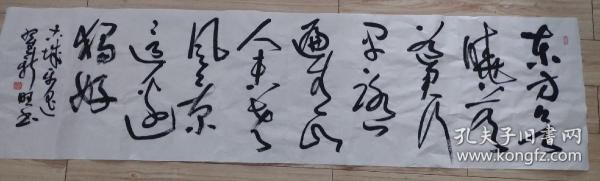 东方欲
晓莫
道君行
早踏
遍青山
人未老
风景
这边
独好
孔夫子旧书网
www.kongfz.com